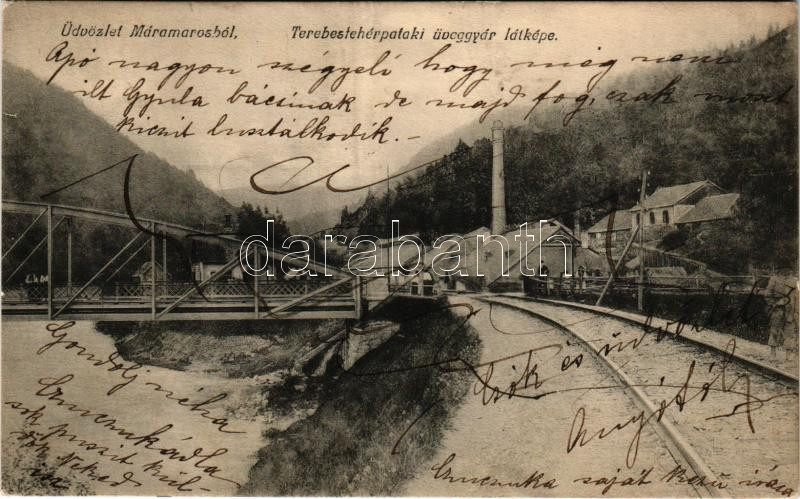 Üdvözlet Máramarosból,
Terebesfehérpataki üveggyár látképe.
Apó nagyon szégyeli hogy még nem
ilt Gyula bácsinak de majd fog, csak most
kicsit lustálkodik.-
darabanth
Gondolj néha
sok puszit kül-
dök Neked
csók és üdvözlet
Anyótól
saját kezü irása